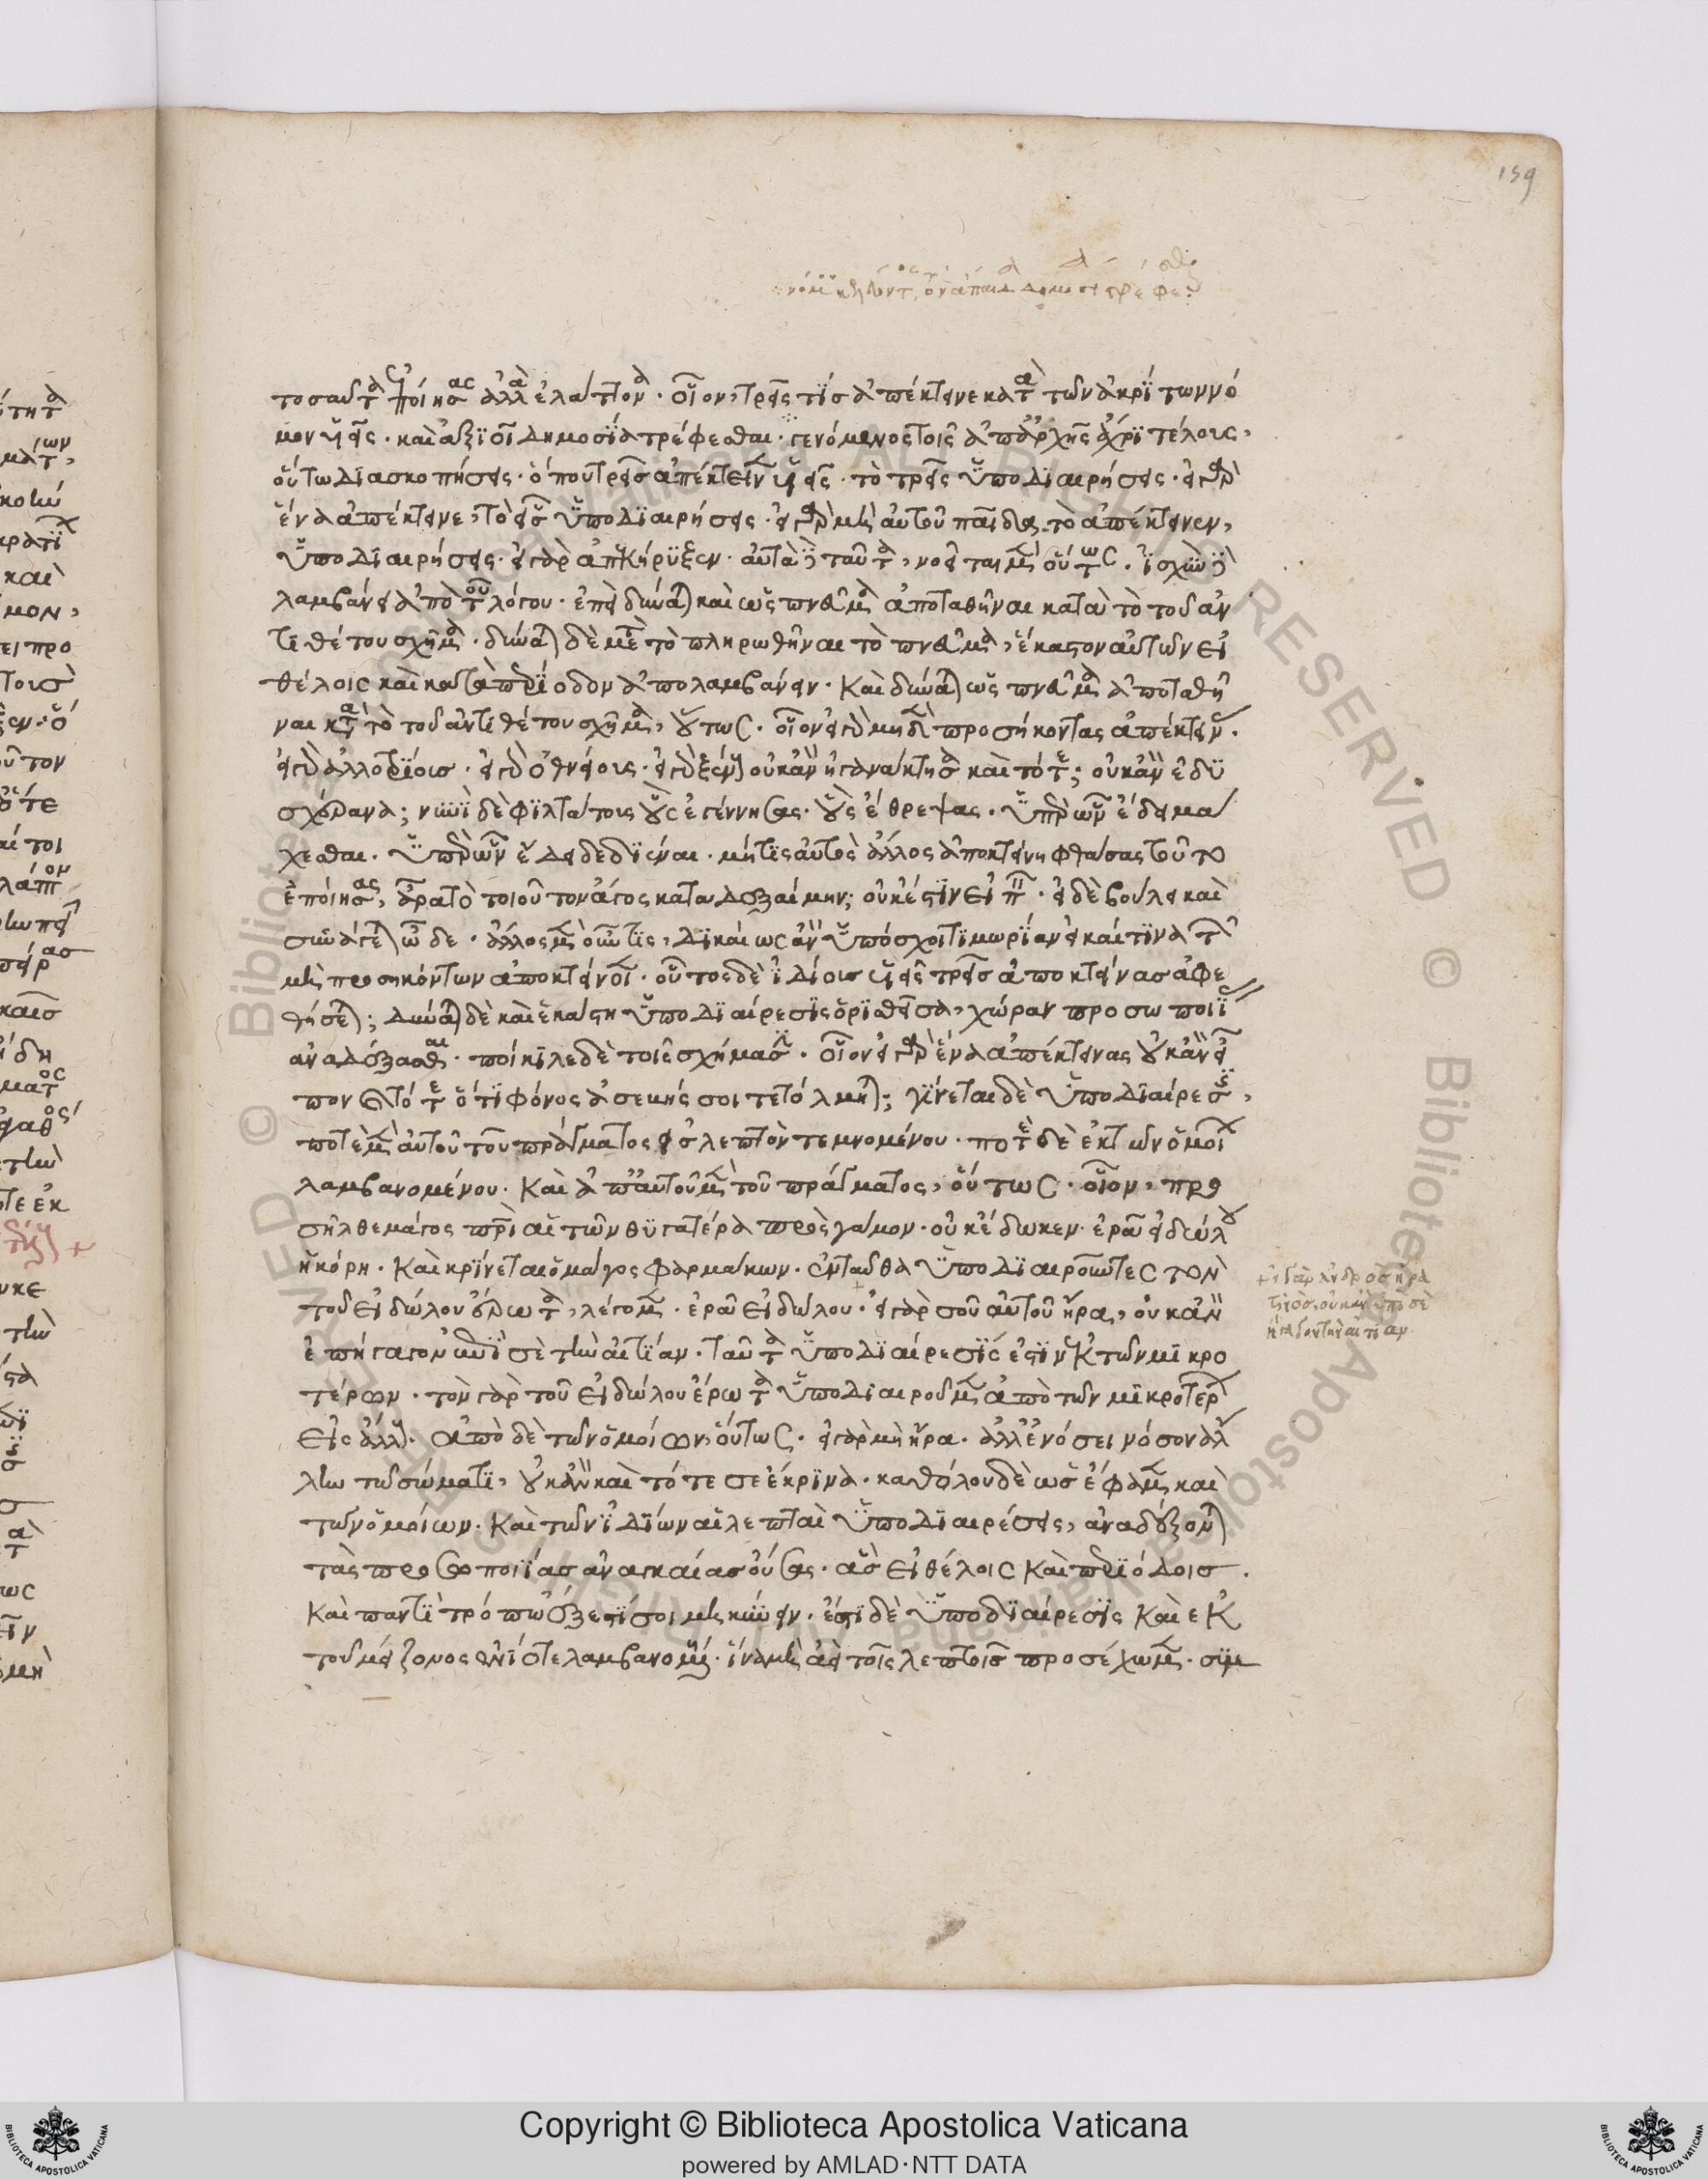 159
τοσαῦτα ποιήσας ἀλλὰ ἐλάττονα. οἷον, τρεῖς τὶς ἀπέκτεινε κατὰ τῶν ἀκρίτων νό
μον υἱεῖς. καὶ ἀξιοῖ δημοσία τρέφεσθαι. γενόμενος τοῖς ἀπαρχῆς ἄχρι τέλους,
οὕτω διασκοπήσεις. ὁ που τρεῖς ἀπέκτεινεν υἱεῖς. τὸ τρεῖς ὑποδιαιρήσεις. εἰ γὰρ
ἕνα ἀπέκτεινε, τὸ εἷς ὑποδιαιρήσεις. εἰ γὰρ μὴ αὐτοῦ παῖδας, τὸ ἀπέκτεινεν,
ὑποδιαιρήσεις. εἰ γὰρ ἀπεκήρυξεν. αὐτὰ ταῦτα, νοεῖται μὲν οὕτως. ἰσχὺν
λαμβάνει ἀπὸ τοῦ λόγου. ἐπεὶ δύναται καὶ ὡς πνεῦμα ἀποταθῆναι κατὰ τὸ τοῦ ἀν
τιθέτου σχῆμα. δύναται δὲ μετὰ τὸ πληρωθῆναι τὸ πνεῦμα, ἕκαστον αὐτῶν εἰ
θέλοις καὶ κατὰ περίοδον ἀπολαμβάνειν. Καὶ δύναται ὡς πνεῦμα ἀποταθῆ
ναι κατὰ τὸ τοῦ ἀντιθέτου σχῆμα, οὕτως. οἷον εἰ γὰρ μηδὲν προσήκοντας ἀπέκτεινεν.
εἰ γὰρ ἀλλοτρίους. εἰ γὰρ ὀθνείους. εἰ γὰρ ξένους οὐκ ἂν ἠγανάκτησα καὶ τότε; οὐκ ἂν ἐδυ
σχέρανα; νυνὶ δὲ φιλτάτοις οὓς ἐγέννησας. οὓς ἔθρεψας. ὑπὲρ ὧν ἔδει μά
χεσθαι. ὑπὲρ ὧν ἔδει δεδιέναι. μήτις αὐτὸς ἄλλος ἀποκτείνῃ φθάσας τοῦτο
ἐποίησας, ἆρα τὸ τοιοῦτον ἄγος καταδεξαίμην; οὐκ ἔστιν εἰπεῖν. εἰ δὲ βούλει καὶ
συνάγεται ὧδε. ἄλλος μὲν οὖν τίς, δικαίως ἂν ὑπόσχοι τιμωρίαν εἰ καί τινα τῶν
μὴ προσηκόντων ἀποκτείνοι. οὗτος δὲ ἰδίους υἱεῖς τρεῖς ἀποκτείνας ἀφε
θήσεται; Δύναται δὲ καὶ ἑκάστη ὑποδιαίρεσις ὁρισθεῖσα, χώραν προσωποιΐ
αν ἀδέξασθαι. ποίκιλε δὲ τοῖς σχήμασιν. οἷον εἰ γὰρ ἕνα ἀπέκτεινας οὐκ ἂν εἶ
πον τότε ὅτι φόνος ἀσεβής σοι τετόλμηται; γίνεται δὲ ὑποδιαίρεσις,
ποτὲ μὲν αὐτοῦ τοῦ πράγματος εἰς λεπτὸν τεμνομένου. ποτὲ δὲ ἐκ τῶν ὁμοίων
λαμβανομένου. Καὶ ἀπ' αὐτοῦ μὲν τοῦ πράγματος, οὕτως. οἷον, προ
σῆλθε μάγος περὶ αἰτῶν θυγατέρα πρὸς γάμον. οὐκ ἔδωκεν. ἐρᾷ εἰδώλου
ἡ κόρη. Καὶ κρίνεται ὁ μάγος φαρμάκων. ἐνταῦθα ὑποδιαιροῦντες τὸν
τοῦ εἰδώλου ἔρωτα, λέγομεν. ἐρᾷ εἰδώλου. εἰ γὰρ σοῦ αὐτοῦ ἤρα, οὐκ ἂν
ἐπήγαγον ἐπὶ σὲ τὴν αἰτίαν. ταῦτα ὑποδιαίρεσίς ἐστιν ἐκ τῶν μικρο
τέρων. τὸν γὰρ τοῦ εἰδώλου ἔρωτα ὑποδιαιροῦμεν ἀπὸ τῶν μικροτέρων
εἰς ἄλλο. ἀπὸ δὲ τῶν ὁμοίων, οὕτως. εἰ γὰρ μὴ ἤρα. ἀλλ' ἐνόσει νόσον ἄλ
λην τῷ σώματι, οὐκ ἂν καὶ τότε σε ἔκρινα. καθόλου δὲ ὡς ἔφαμεν καὶ
τῶν ὁμοίων. Καὶ τῶν ἰδίων αἱ λεπταὶ ὑποδιαιρέσεις, ἀναδέξονται
τὰς προσωποιΐας ἀναγκαίας οὔσας. ἃς εἰ θέλοις καὶ περιόδοις.
Καὶ παντὶ τρόπῳ ἔξεστί σοι μηκύνειν. ἔστι δὲ ὑποδιαίρεσις καὶ ἐκ
τοῦ μείζονος ἐνίοτε λαμβανομένη. ἵνα μὴ ἀεὶ τοῖς λεπτοῖς προσέχωμεν. συμ
εἰ γὰρ ἀνδρὸς ἤρα
τινὸς, οὐκ ἂν ἐπὶ σὲ
ἦγον τὴν αἰτίαν